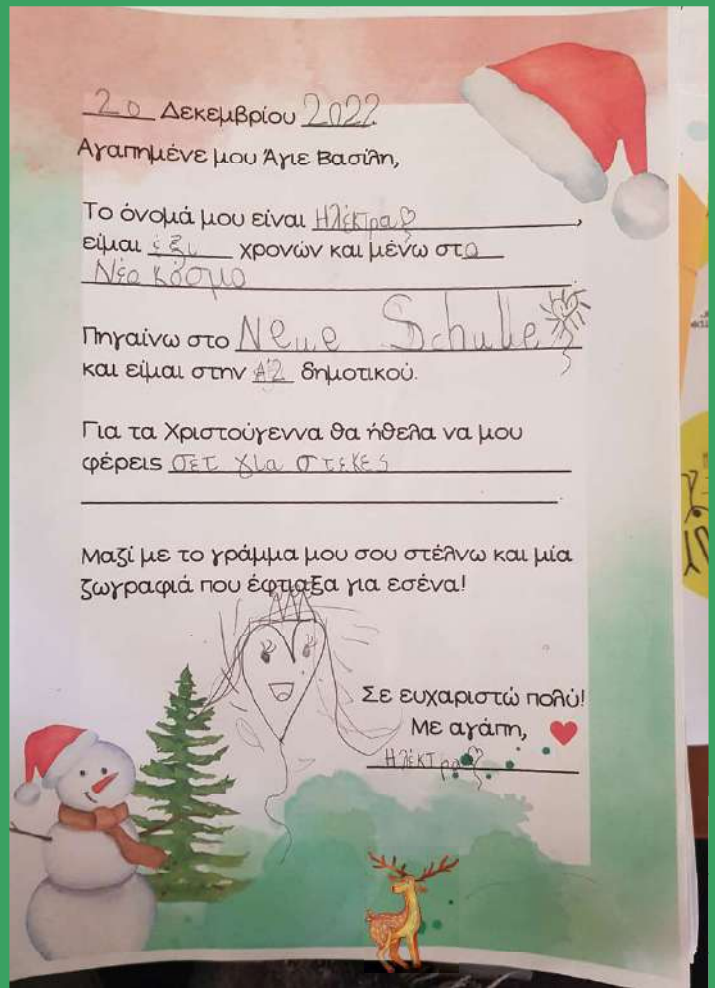 20 Δεκεμβρίου 2022
Αγαπημένε μου Άγιε Βασίλη,
Το όνομά μου είναι Ηλέκτρα,
είμαι έξι χρονών και μένω στο
Νέο κόσμο.
Πηγαίνω στο Neue Schulle
και είμαι στην Α'2 δημοτικού.
Για τα Χριστούγεννα θα ήθελα να μου
φέρεις σετ για στέκες
.
Μαζί με το γράμμα μου σου στέλνω και μία
ζωγραφιά που έφτιαξα για εσένα!
Σε ευχαριστώ πολύ!
Με αγάπη,
Ηλέκτρα